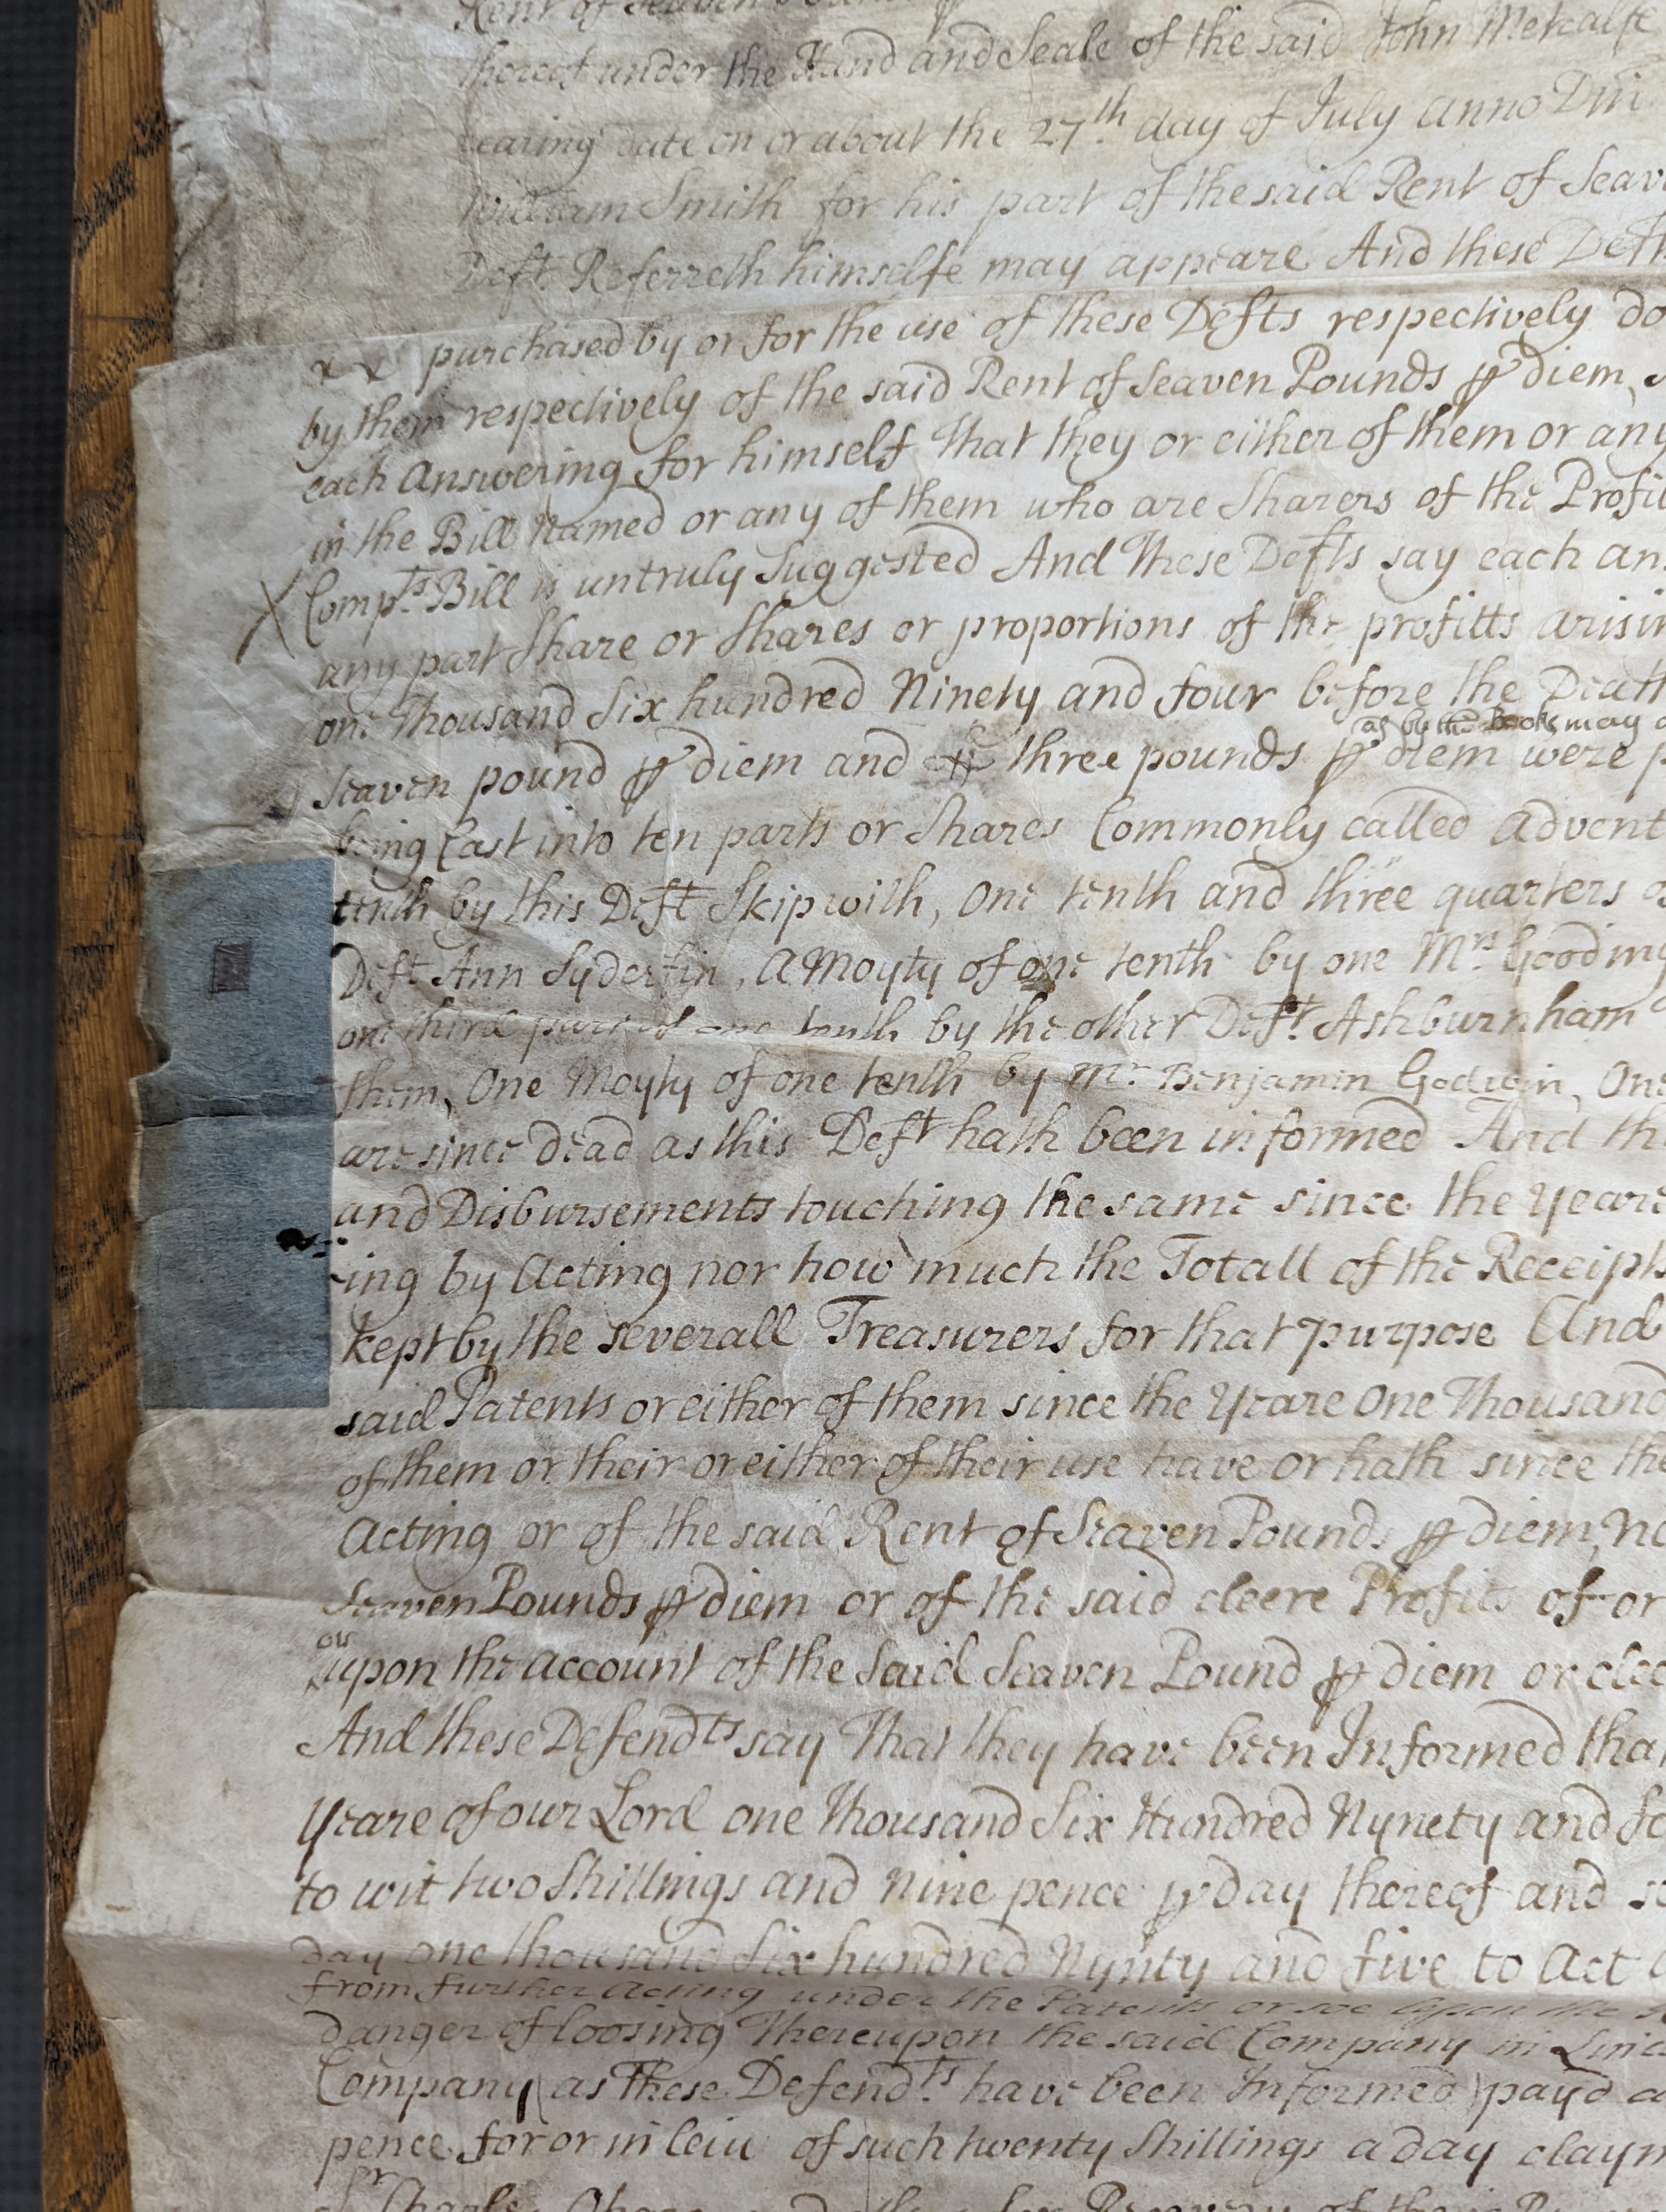 Rent of Seaven
thereof under the Hand and Seale of the said John Metcalfe
bearing date on or about the 27th day of July Anno Dni
William Smith for his part of the said Rent of Seav
Deft Referreth himselfe may appeare And these Deft
x x purchased by or for the use of these Defts respectively do
by them respectively of the said Rent of Seaven Pounds ꝑ diem
each Answering for himself That they or either of them or any
in the Bill Named or any of them who are Sharers of the Profi
Compts Bill is untruly Suggested And These Defts say each an
any part Share or Shares or proportions of the profitts arisin
one Thousand Six hundred Ninety and four before the Death
as by the Books may a
Seaven pound ꝑ diem and three pounds ꝑ diem were p
being Cast into ten parts or Shares Commonly called Advent
tenth by this Deft Skipwith, One tenth and three quarters o
Deft Ann Syderfin, A Moyty of one tenth by one Mrs Gooding
one third part of one tenth by the other Deft Ashburnham
them, One Moyty of one tenth by Mr Benjamin Godwin, One
are since dead as this Deft hath been informed And th
and Disbursements touching the same since the Yeare
ing by Acting nor how much the Totall of the Receipts
kept by the severall Treasurers for that purpose And
said Patents or either of them since the Yeare One Thousand
of them or their or either of their use have or hath since the
Acting or of the said Rent of Seaven Pounds ꝑ diem, no
Seaven Pounds ꝑ diem or of the said cleere Profits of or
or
upon the account of the Said Seaven Pound ꝑ diem or clee
And these Defendts say That they have been Informed tha
Yeare of our Lord one Thousand Six Hundred Nynety and fo
to wit two Shillings and Nine pence ꝑ day thereof and so
day one thousand Six hundred Nynty and five to Act
from further Acting under the Patents or soe upon the
danger of loosing Thereupon the said Company in
Company (as These Defendts have been Informed) payd a
pence for or in leiu of such twenty Shillings a day claym
Sr Charles